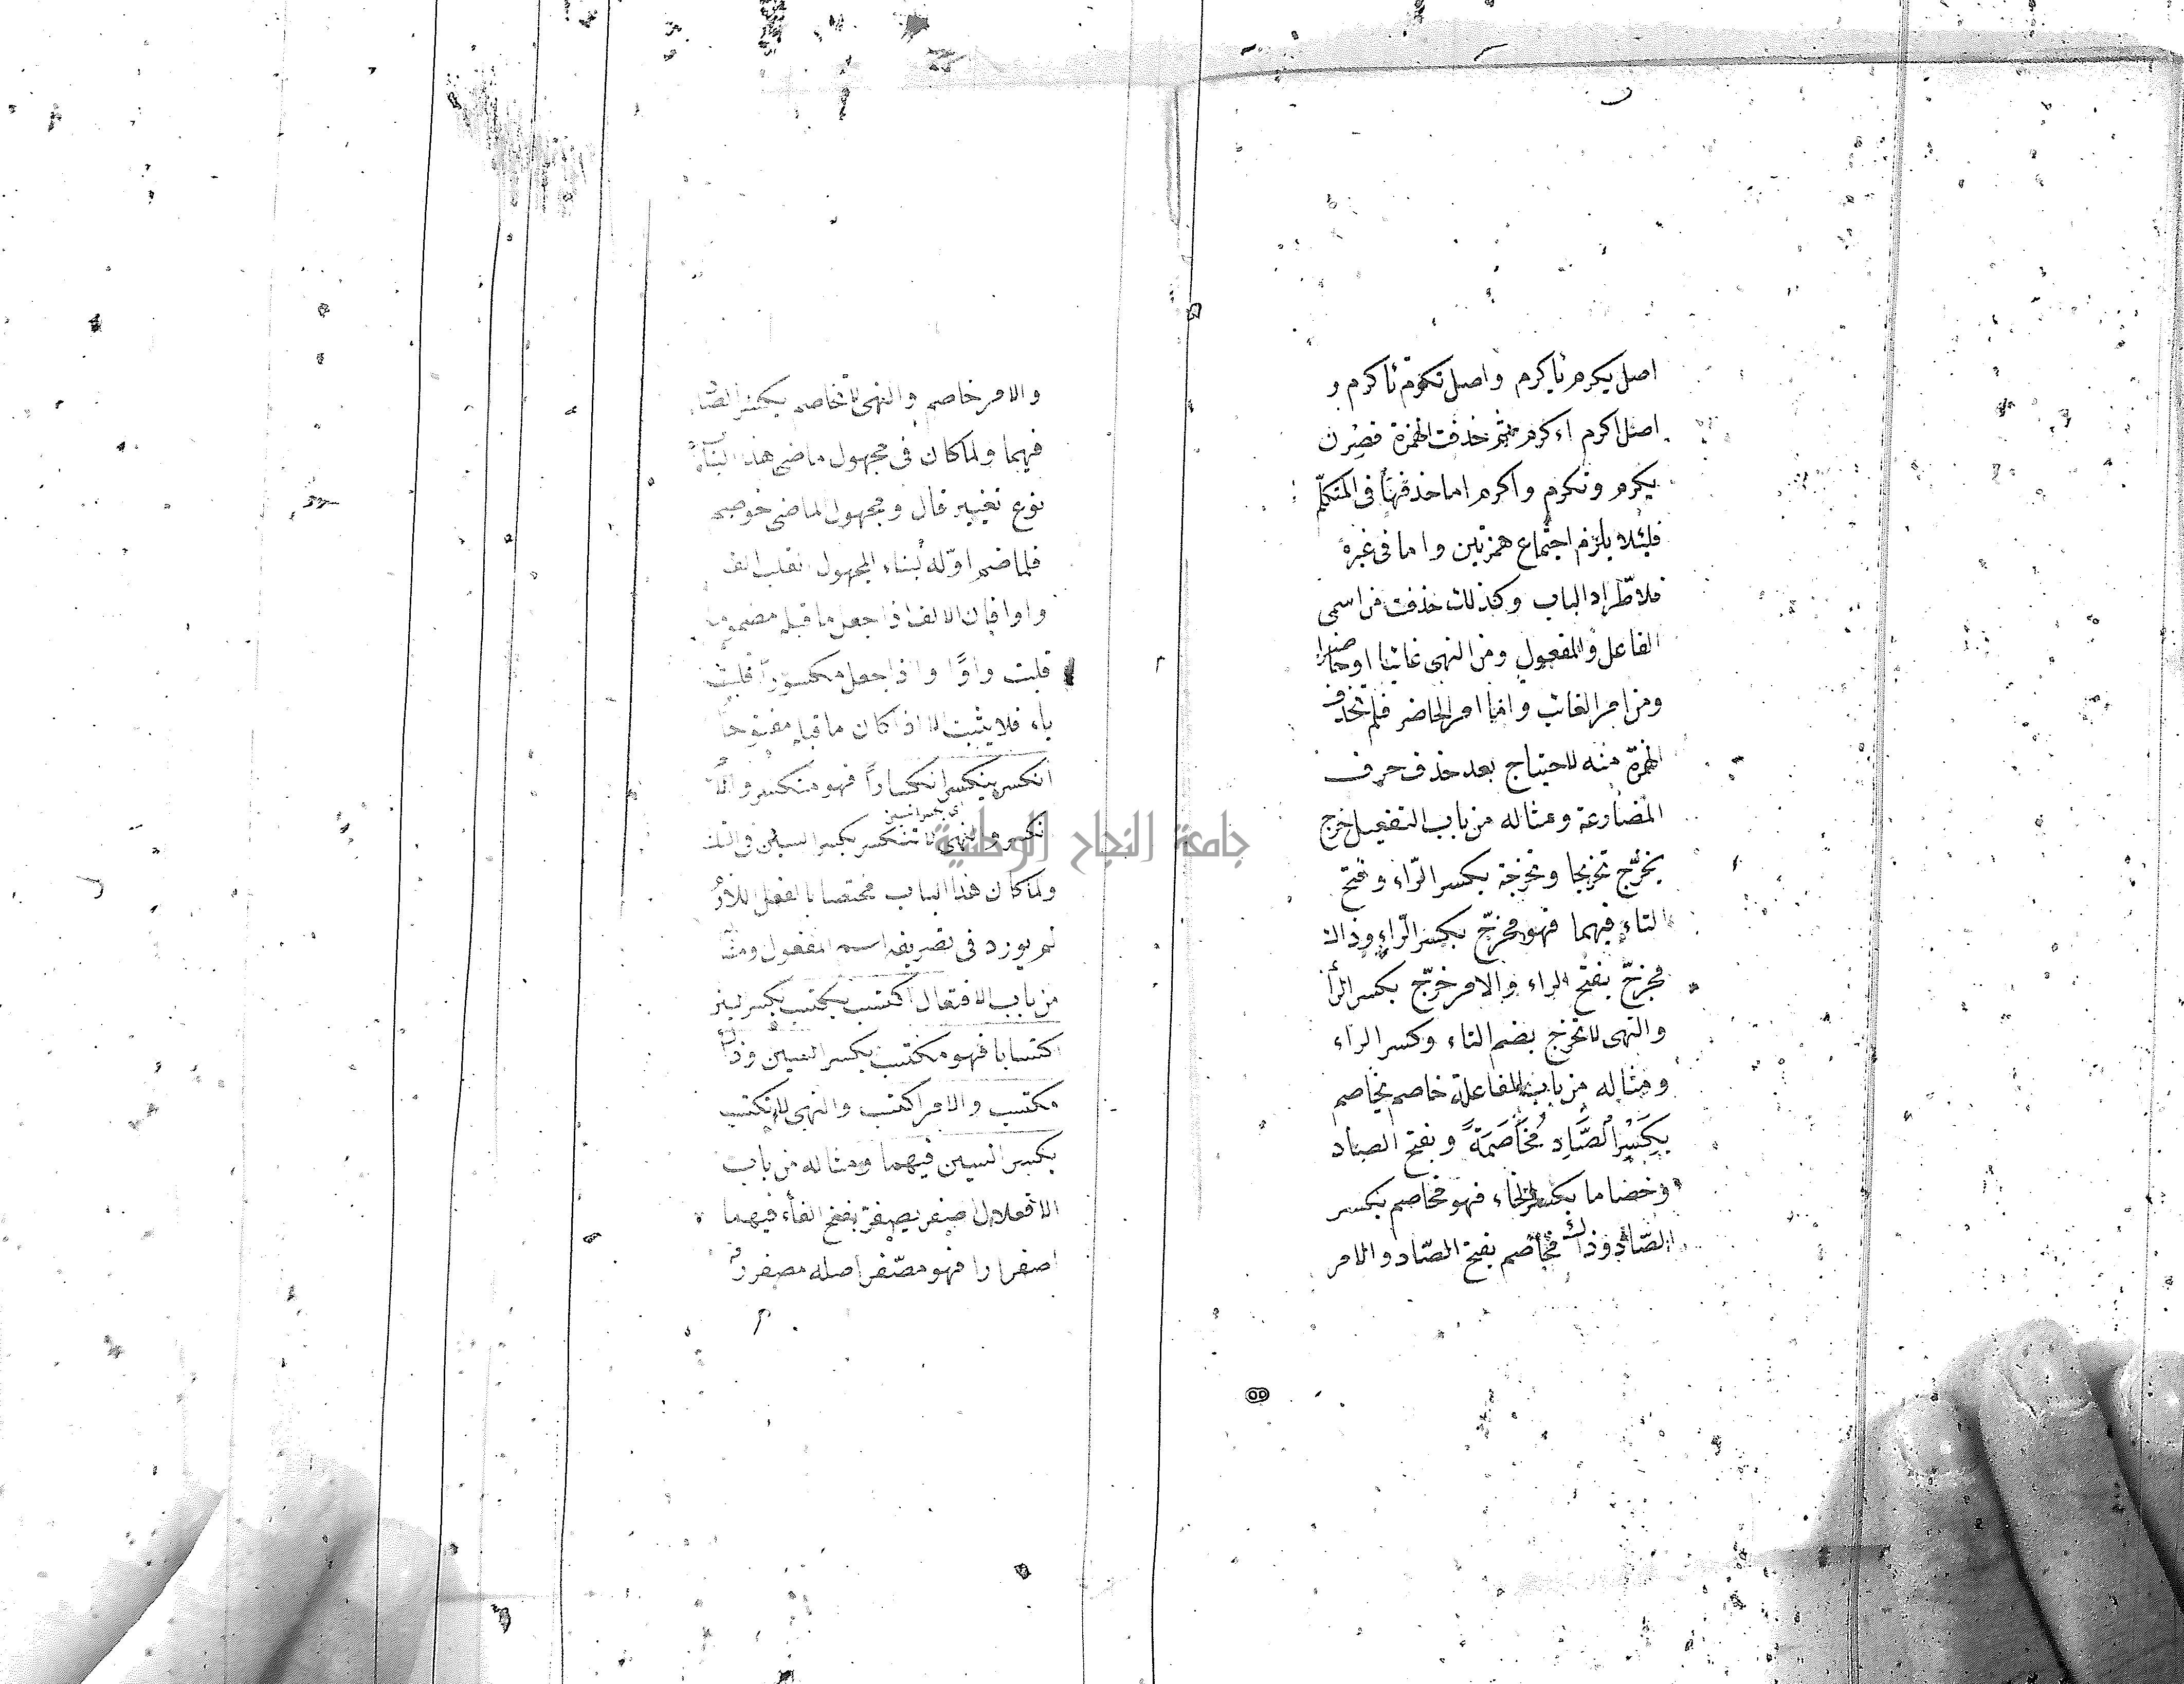 اصل يكرم يأكرم واصل تكرم تأكرم و
اصل اكرم اءكرم ثم حذفت الهمزة فصرن
يكرم وتكرم واكرم اما حذفها فى المتكلم
فلئلا يلزم اجتماع همزتين واما فى غيره
فلاطّراد الباب وكذلك حذفت من اسمى
الفاعل والمفعول ومن النهى غائبا او حاضرا
ومن امر الغائب واما امر الحاضر فلم تحذف
الهمزة منه للاحتياج بعد حذف حرف
المضارعة ومثاله من باب التفعيل خرج
يخرّج تخريجا وتخرجة بكسر الرّاء وفتح
التاء فيهما فهو مخرّج بكسر الرّاء وذاك
مخرّج بفتح الراء والامر خرّج بكسر الرأ
والنهى لا تخرج بضم التاء وكسر الراء
ومثاله من باب المفاعلة خاصم يخاصم
بِكَسْرِ الصَّادِ مُخَاصَمَةً وبفتح الصاد
وخصاما بكسر الخاء فهو مخاصم بكسر
الصّاد وذاك مخاصم بفتح الصّاد والامر
والامر خاصم والنهى لا تخاصم بكسر الصّاد
فيهما ولما كان فى مجهول ماضى هذا البناء
نوع تغيير قال ومجهول الماضى خوصم
فلما ضم اوّله لبناء المجهول تقلب الف
واوا فان الالف اذا جعل ما قبله مضموما
قلبت واوًا واذا جعل مكسورًا قلبت
ياء فلا يثبت الا اذا كان ما قبله مفتوحا
انكسر ينكسر انكسارًا فهو منكسر والامر
انكسر والنهى لا تنكسر بكسر السين فى
ولما كان هذا الباب مختصا بالفعل اللازم
لم يورد فى تصريفه اسم المفعول
من باب الافتعال اكتسب يكتسب بكسر
اكتسابا فهو مكتسب بكسر السين وذاك
مكتسب والامر اكتسب والنهى لا تكتسب
بكسر السين فيهما ومثاله من باب
الافعلال اصفر يصفرّ بفتح الفاء فيهما
اصفرارا فهو مصفّر اصله مصفررٌ
جامعة النجاح الوطنية